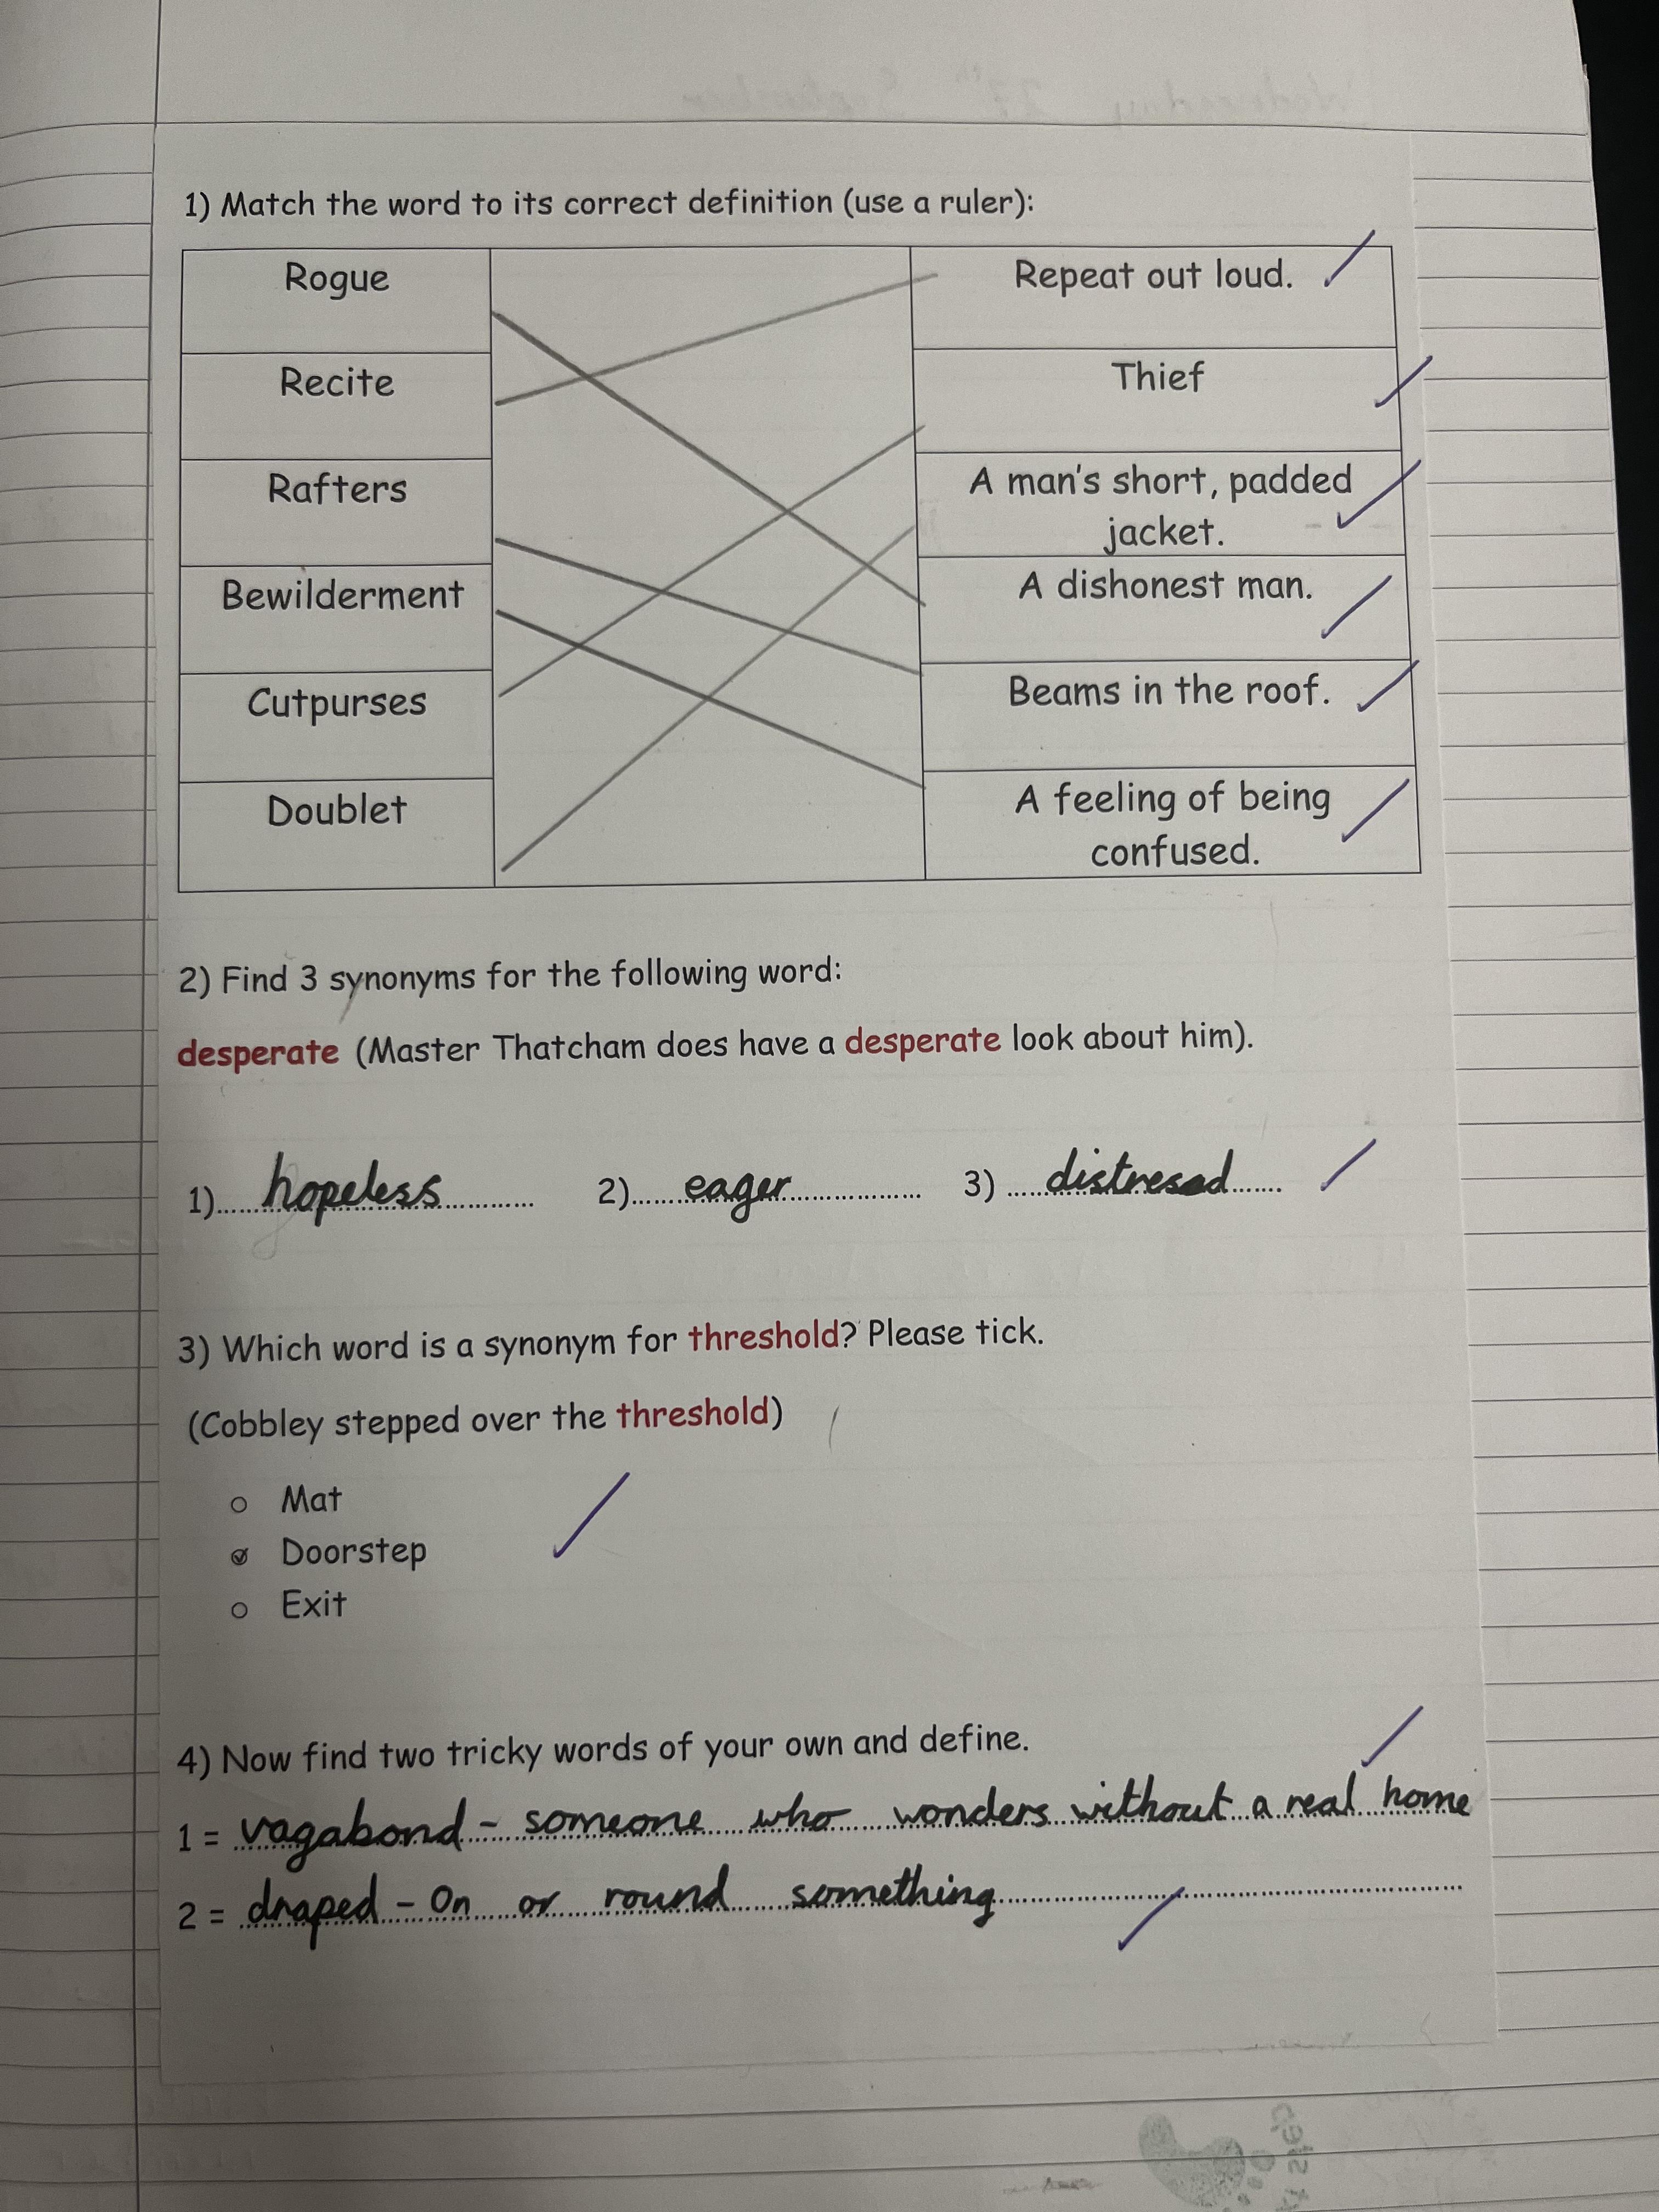 1) Match the word to its correct definition (use a ruler):
Rogue
Repeat out loud.
Recite
Thief
Rafters
A man's short, padded
jacket.
Bewilderment
A dishonest man.
Cutpurses
Beams in the roof.
Doublet
A feeling of being
confused.
2) Find 3 synonyms for the following word:
desperate (Master Thatcham does have a desperate look about him).
1) hopeless 2) eager 3) distresed
3) Which word is a synonym for threshold? Please tick.
(Cobbley stepped over the threshold)
Mat
Doorstep
Exit
4) Now find two tricky words of your own and define.
1 = vagabond - someone who wonders without a real home
2 = draped - On or round something